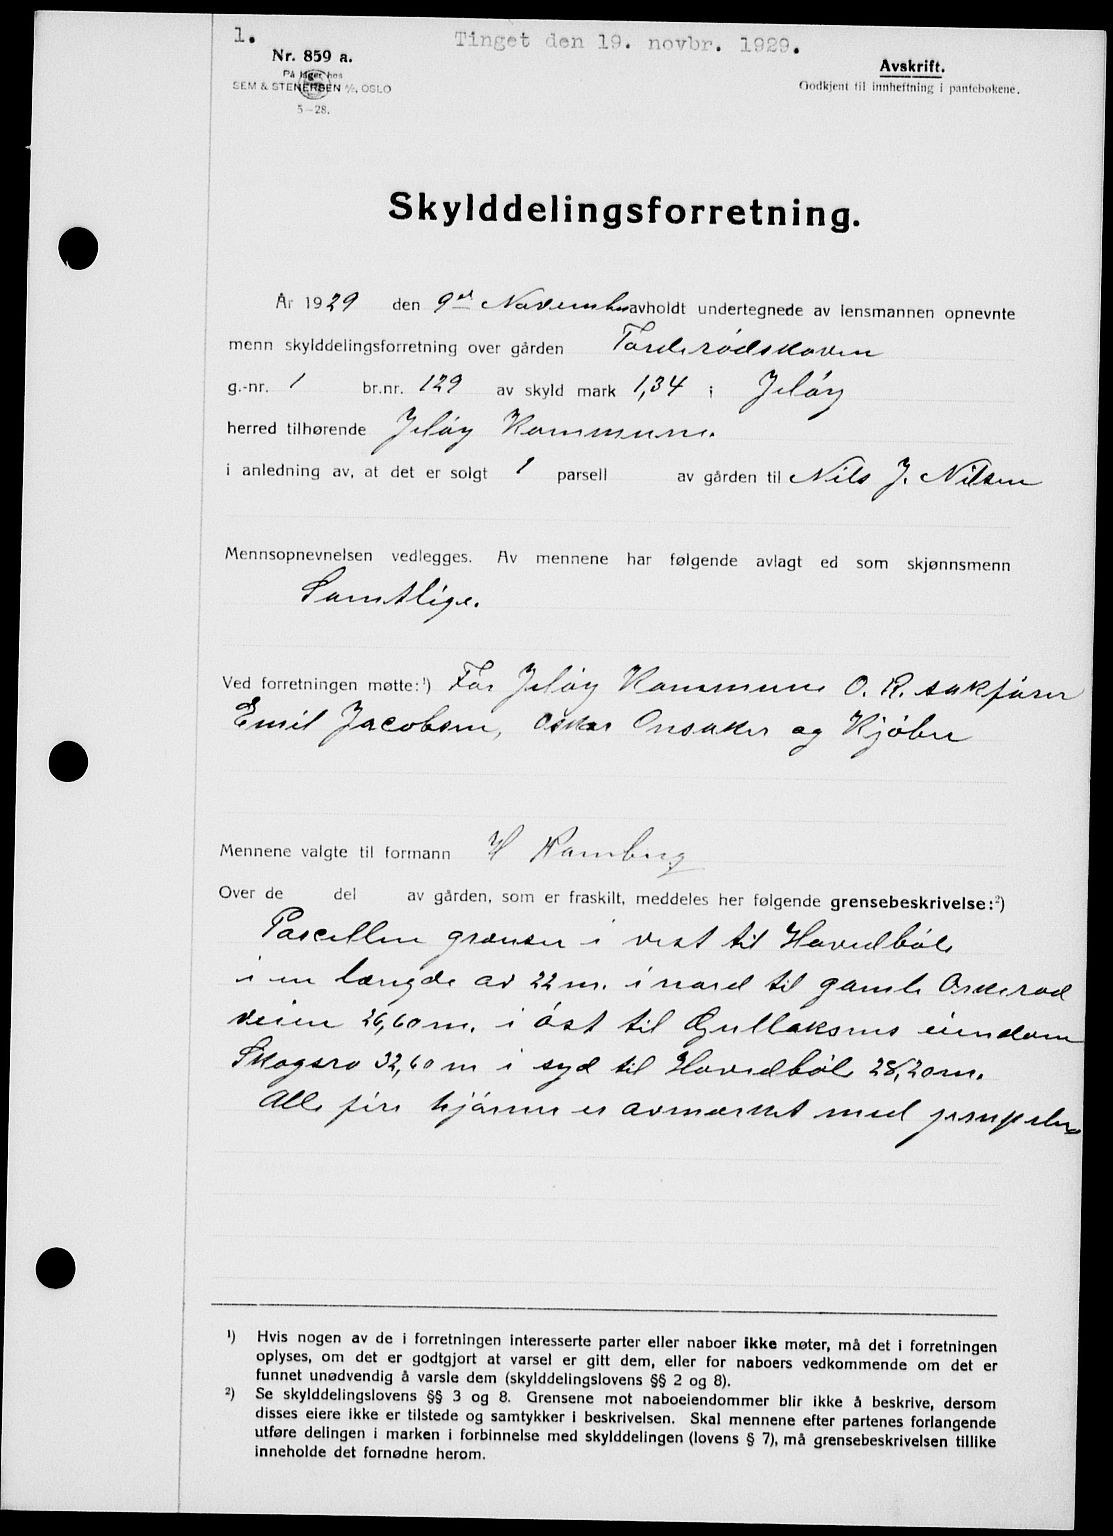 1.
Tinget den 19. novbr. 1929.
Nr. 859 a.
På lager hos
SEM & STENERSEN A/S, OSLO
5–28.
Avskrift.
Godkjent til innheftning i pantebøkene.
Skylddelingsforretning.
År 1929 den 9de November avholdt undertegnede av lensmannen opnevnte
menn skylddelingsforretning over gården Torderødskoven
g.-nr. 1 br.nr. 129 av skyld mark 1,34 i Jeløy
herred tilhørende Jeløy Kommune.
i anledning av, at det er solgt 1 parsell av gården til Nils J. Nilsen
Mennsopnevnelsen vedlegges. Av mennene har følgende avlagt ed som skjønnsmenn
Samtlige.
Ved forretningen møtte:¹) For Jeløy Kommune O. R. sakfører
Emil Jacobsen, Oskar Onsaker og Kjøber
Mennene valgte til formann H Ramberg
Over de del av gården, som er fraskilt, meddeles her følgende grensebeskrivelse:²)
Parcellen grænser i vest til Hovedbøle
i en længde av 22 m. i nord til gamle Orkerød
veien 26,60 m. i øst til Gullaksens eiendom
Skogsro 32,60 m i syd til Hovedbøle 28,20 m.
Alle fire hjørner er avmærket med jernpeler
¹) Hvis nogen av de i forretningen interesserte parter eller naboer ikke møter, må det i forretningen
oplyses, om det er godtgjort at varsel er gitt dem, eller for naboers vedkommende om det er
funnet unødvendig å varsle dem (skylddelingslovens §§ 2 og 8).
²) Se skylddelingslovens §§ 3 og 8. Grensene mot naboeiendommer blir ikke å beskrive, dersom
disses eiere ikke er tilstede og samtykker i beskrivelsen. Skal mennene efter partenes forlangende
utføre delingen i marken i forbinnelse med skylddelingen (lovens § 7), må grensebeskrivelsen tillike
inneholde det fornødne herom.